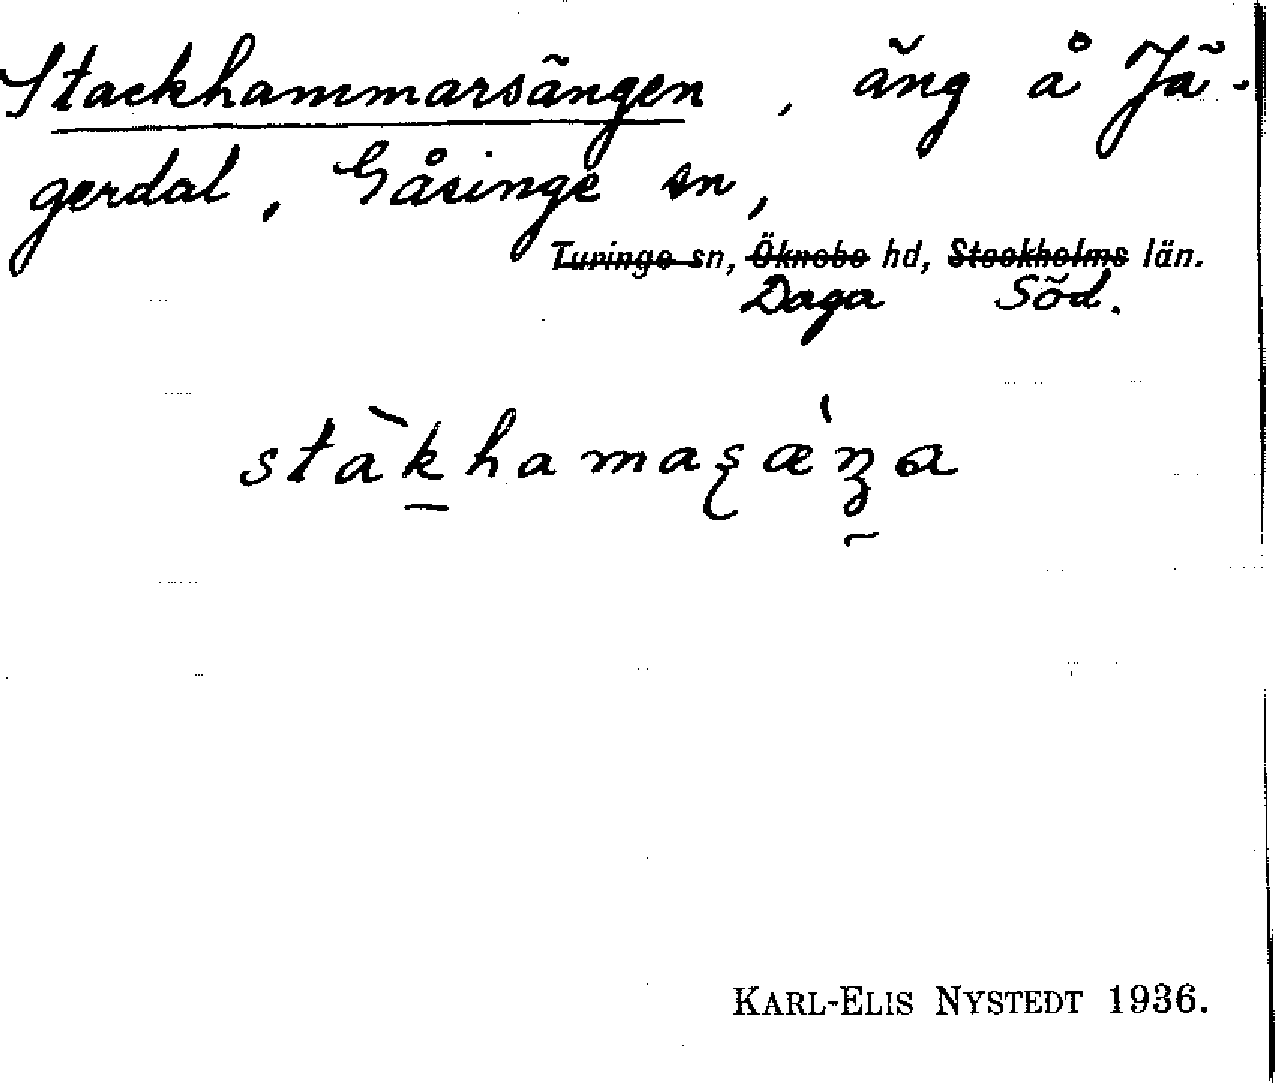 Stackhammarsängen, äng å Jä-
gerdal, Gåsinge sn,
Turinge sn, Öknebo hd, Stockholms län.
Daga Söd.
stàkhamaşæ̀ŋa
KARL-ELIS NYSTEDT 1936.